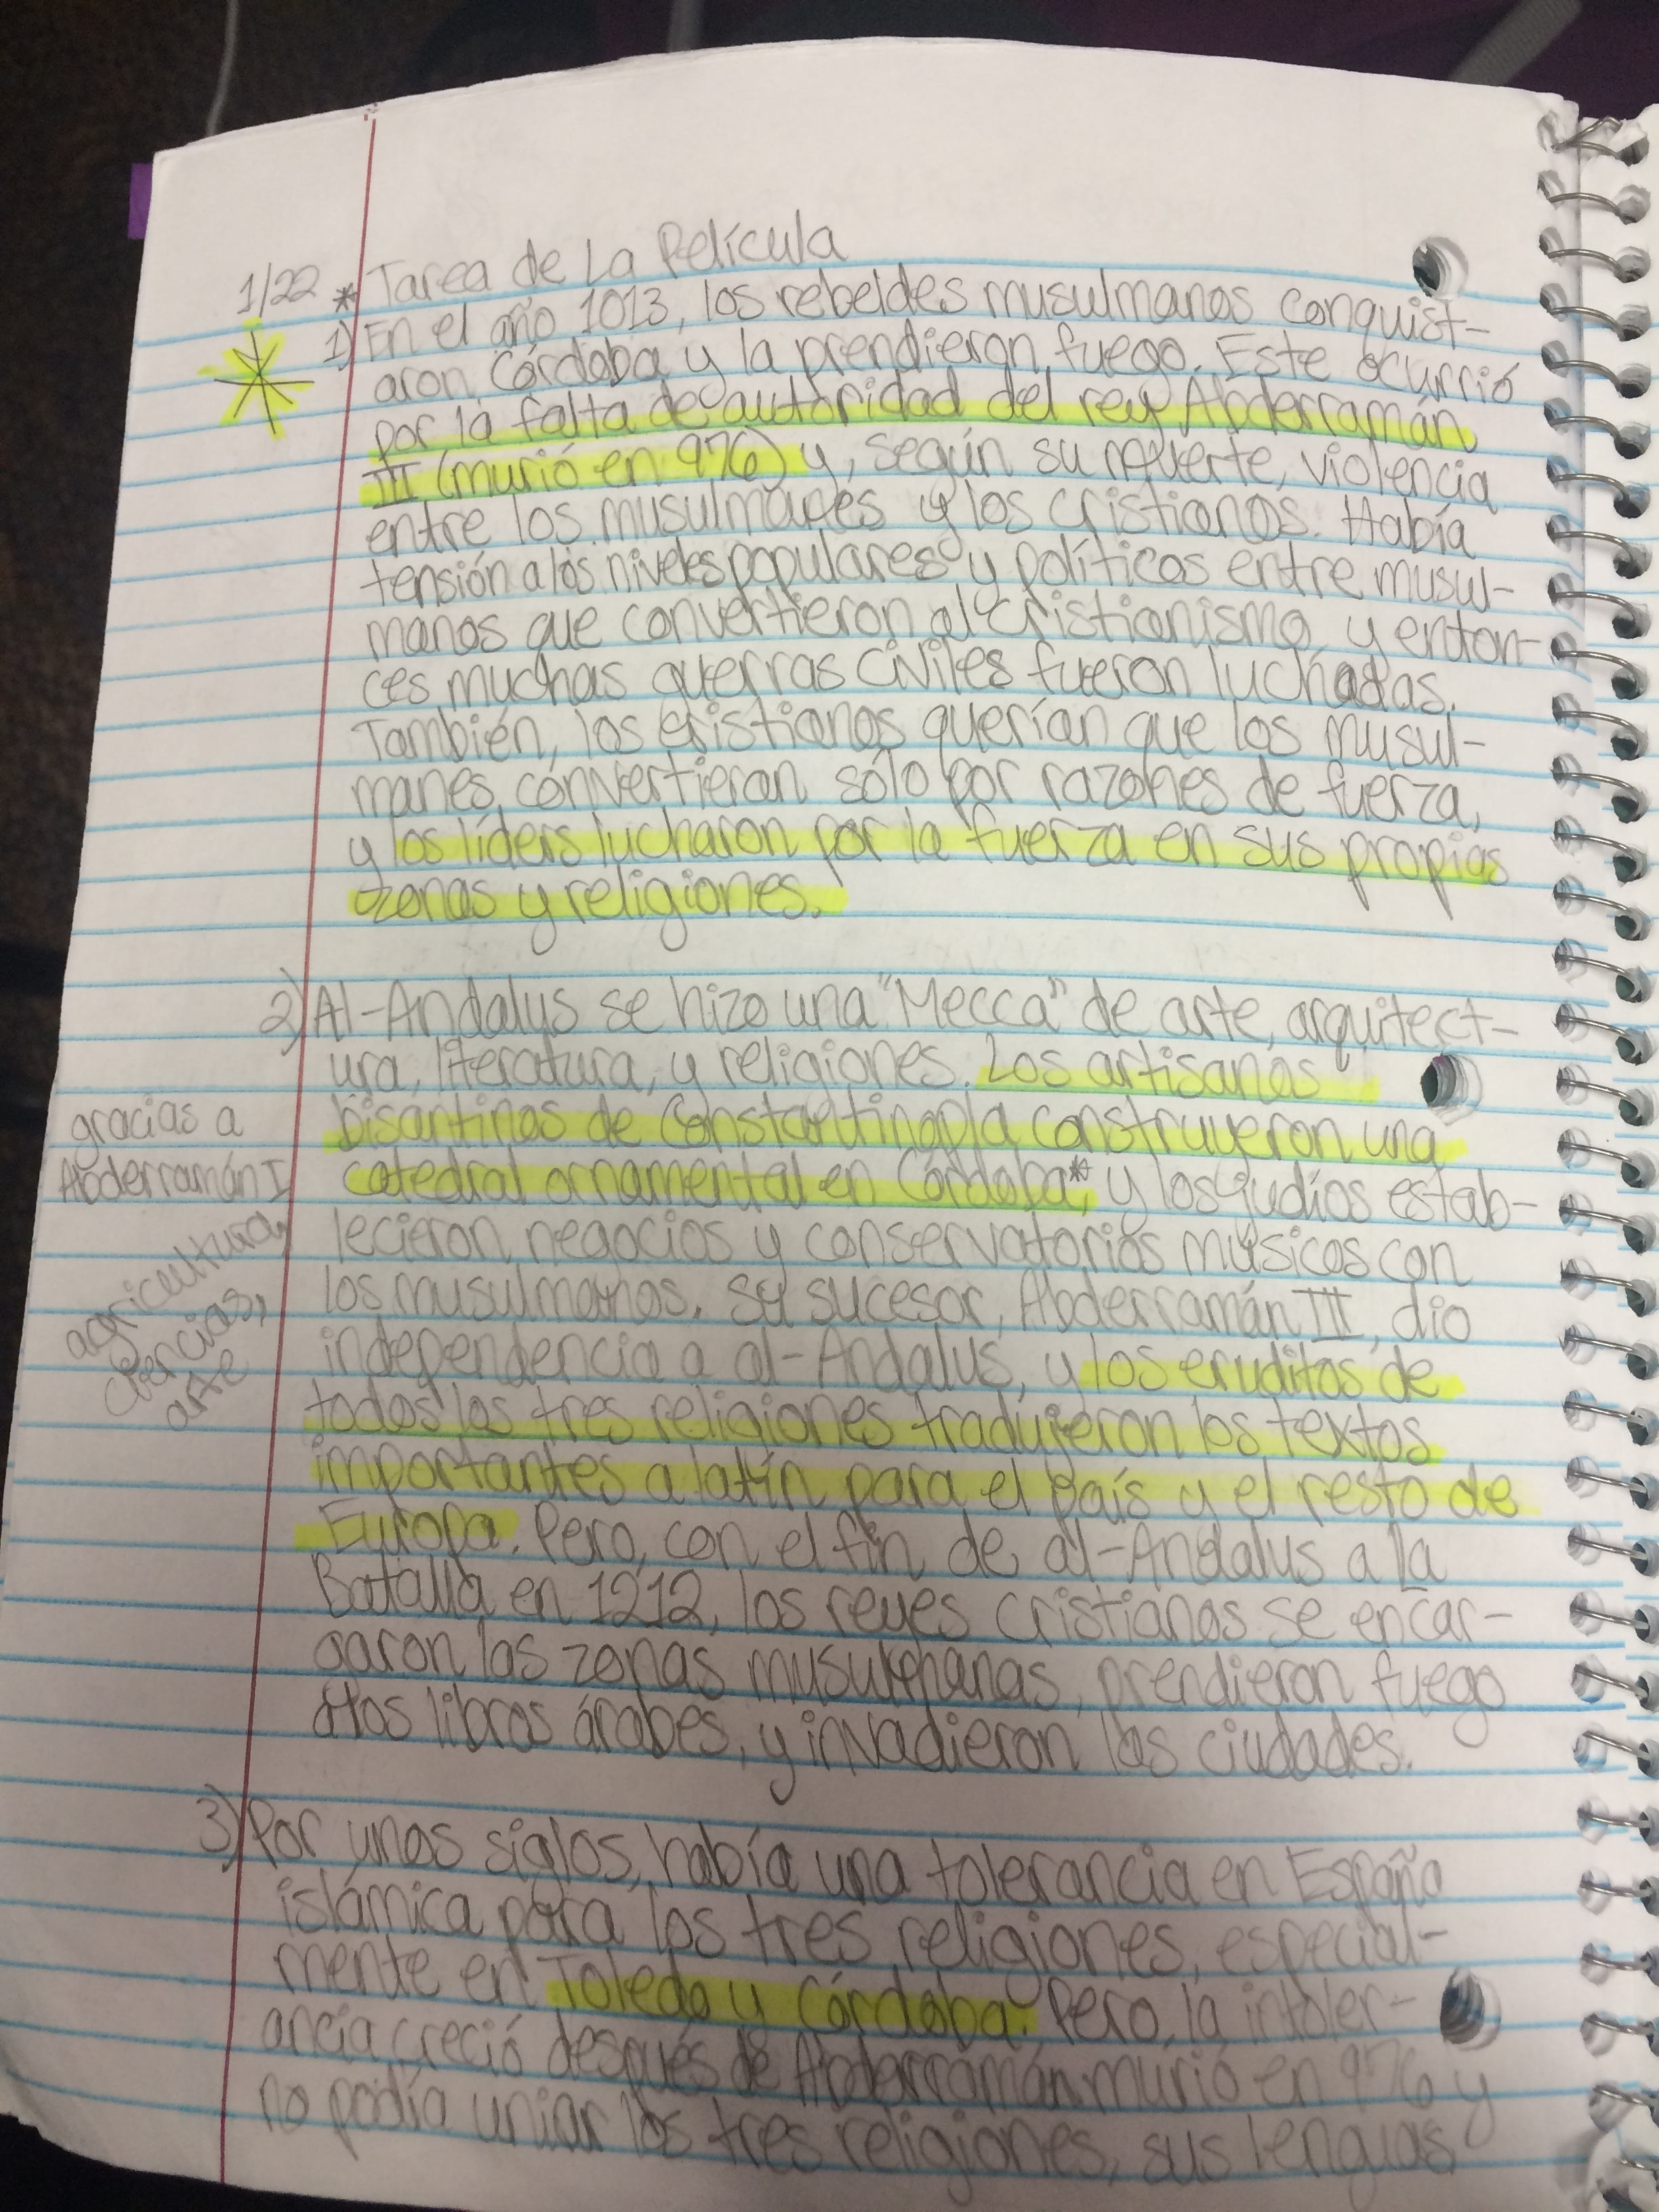 1/22 * Tarea de La Película
1) En el año 1013, los rebeldes musulmanos conquist-
aron Córdoba y la prendieron fuego. Este ocurrió
por la falta de autoridad del rey Abderramán
III (murió en 976) y, según su muerte, violencia
entre los musulmanes y los cristianos. Había
tensión a los niveles populares y políticos entre musul-
manos que convertieron al cristianismo, y enton-
ces muchas guerras civiles fueron luchadas.
También, los cristianos querían que los musul-
manes convertieran sólo por razones de fuerza,
y los líders lucharon por la fuerza en sus propias
zonas y religiones.
2) Al-Andalus se hizo una "Mecca" de arte, arquitect-
ura, literatura, y religiones. Los artisanos
bisantinos de Constantinopla construyeron una
catedral ornamental en Córdoba*, y los judíos estab-
lecieron negocios y conservatorios músicos con
los musulmanos. Su sucesor, Abderramán III, dio
independencia a al-Andalus, y los eruditos de
todos los tres religiones tradujeron los textos
importantes a latín para el país y el resto de
Europa. Pero, con el fin de al-Andalus a la
Batalla en 1212, los reyes cristianos se encar-
garon las zonas musulmanas, prendieron fuego
a los libros árabes, y invadieron las ciudades.
gracias a
Abderramán I
agricultura,
ciencias,
arte
3) Por unos siglos, había una tolerancia en España
islámica para los tres religiones, especial-
mente en Toledo y Córdoba. Pero, la intoler-
ancia creció después de Abderramán murió en 976 y
no podía uniar los tres religiones, sus lenguas